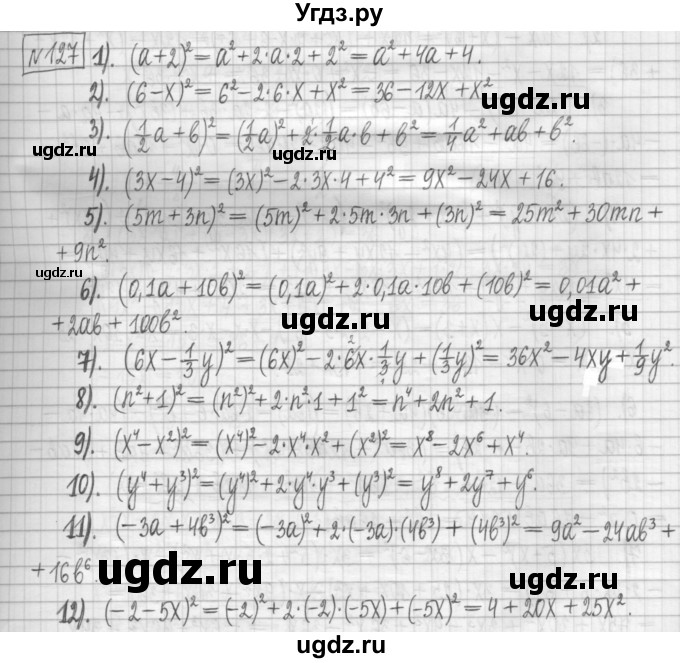 Угдз.ру
№127 1). (a+2)² = a²+2·a·2+2² = a²+4a+4.
2). (6-x)² = 6²-2·6·x+x² = 36-12x+x²
ugdz.ru
3). (1/2a+b)² = (1/2a)²+2·1/2a·b+b² = 1/4a²+ab+b².
ugdz.ru ugdz.ru
4). (3x-4)² = (3x)²-2·3x·4+4² = 9x²-24x+16.
ugdz.ru
5). (5m+3n)² = (5m)²+2·5m·3n+(3n)² = 25m²+30mn+
+9n².
ugdz.ru
6). (0,1a+10b)² = (0,1a)²+2·0,1a·10b+(10b)² = 0,01a²+
+2ab+100b².
ugdz.ru ugdz.ru
7). (6x-1/3y)² = (6x)²-2·6x·1/3y+(1/3y)² = 36x²-4xy+1/9y².
8). (n²+1)² = (n²)²+2·n²·1+1² = n⁴+2n²+1.
ugdz.ru
9). (x⁴-x²)² = (x⁴)²-2·x⁴·x²+(x²)² = x⁸-2x⁶+x⁴.
10). (y⁴+y³)² = (y⁴)²+2·y⁴·y³+(y³)² = y⁸+2y⁷+y⁶.
ugdz.ru
11). (-3a+4b³)² = (-3a)²+2·(-3a)·(4b³)+(4b³)² = 9a²-24ab³+
+16b⁶.
ugdz.ru ugdz.ru
12). (-2-5x)² = (-2)²+2·(-2)·(-5x)+(-5x)² = 4+20x+25x².
ugdz.ru
ugdz.ru